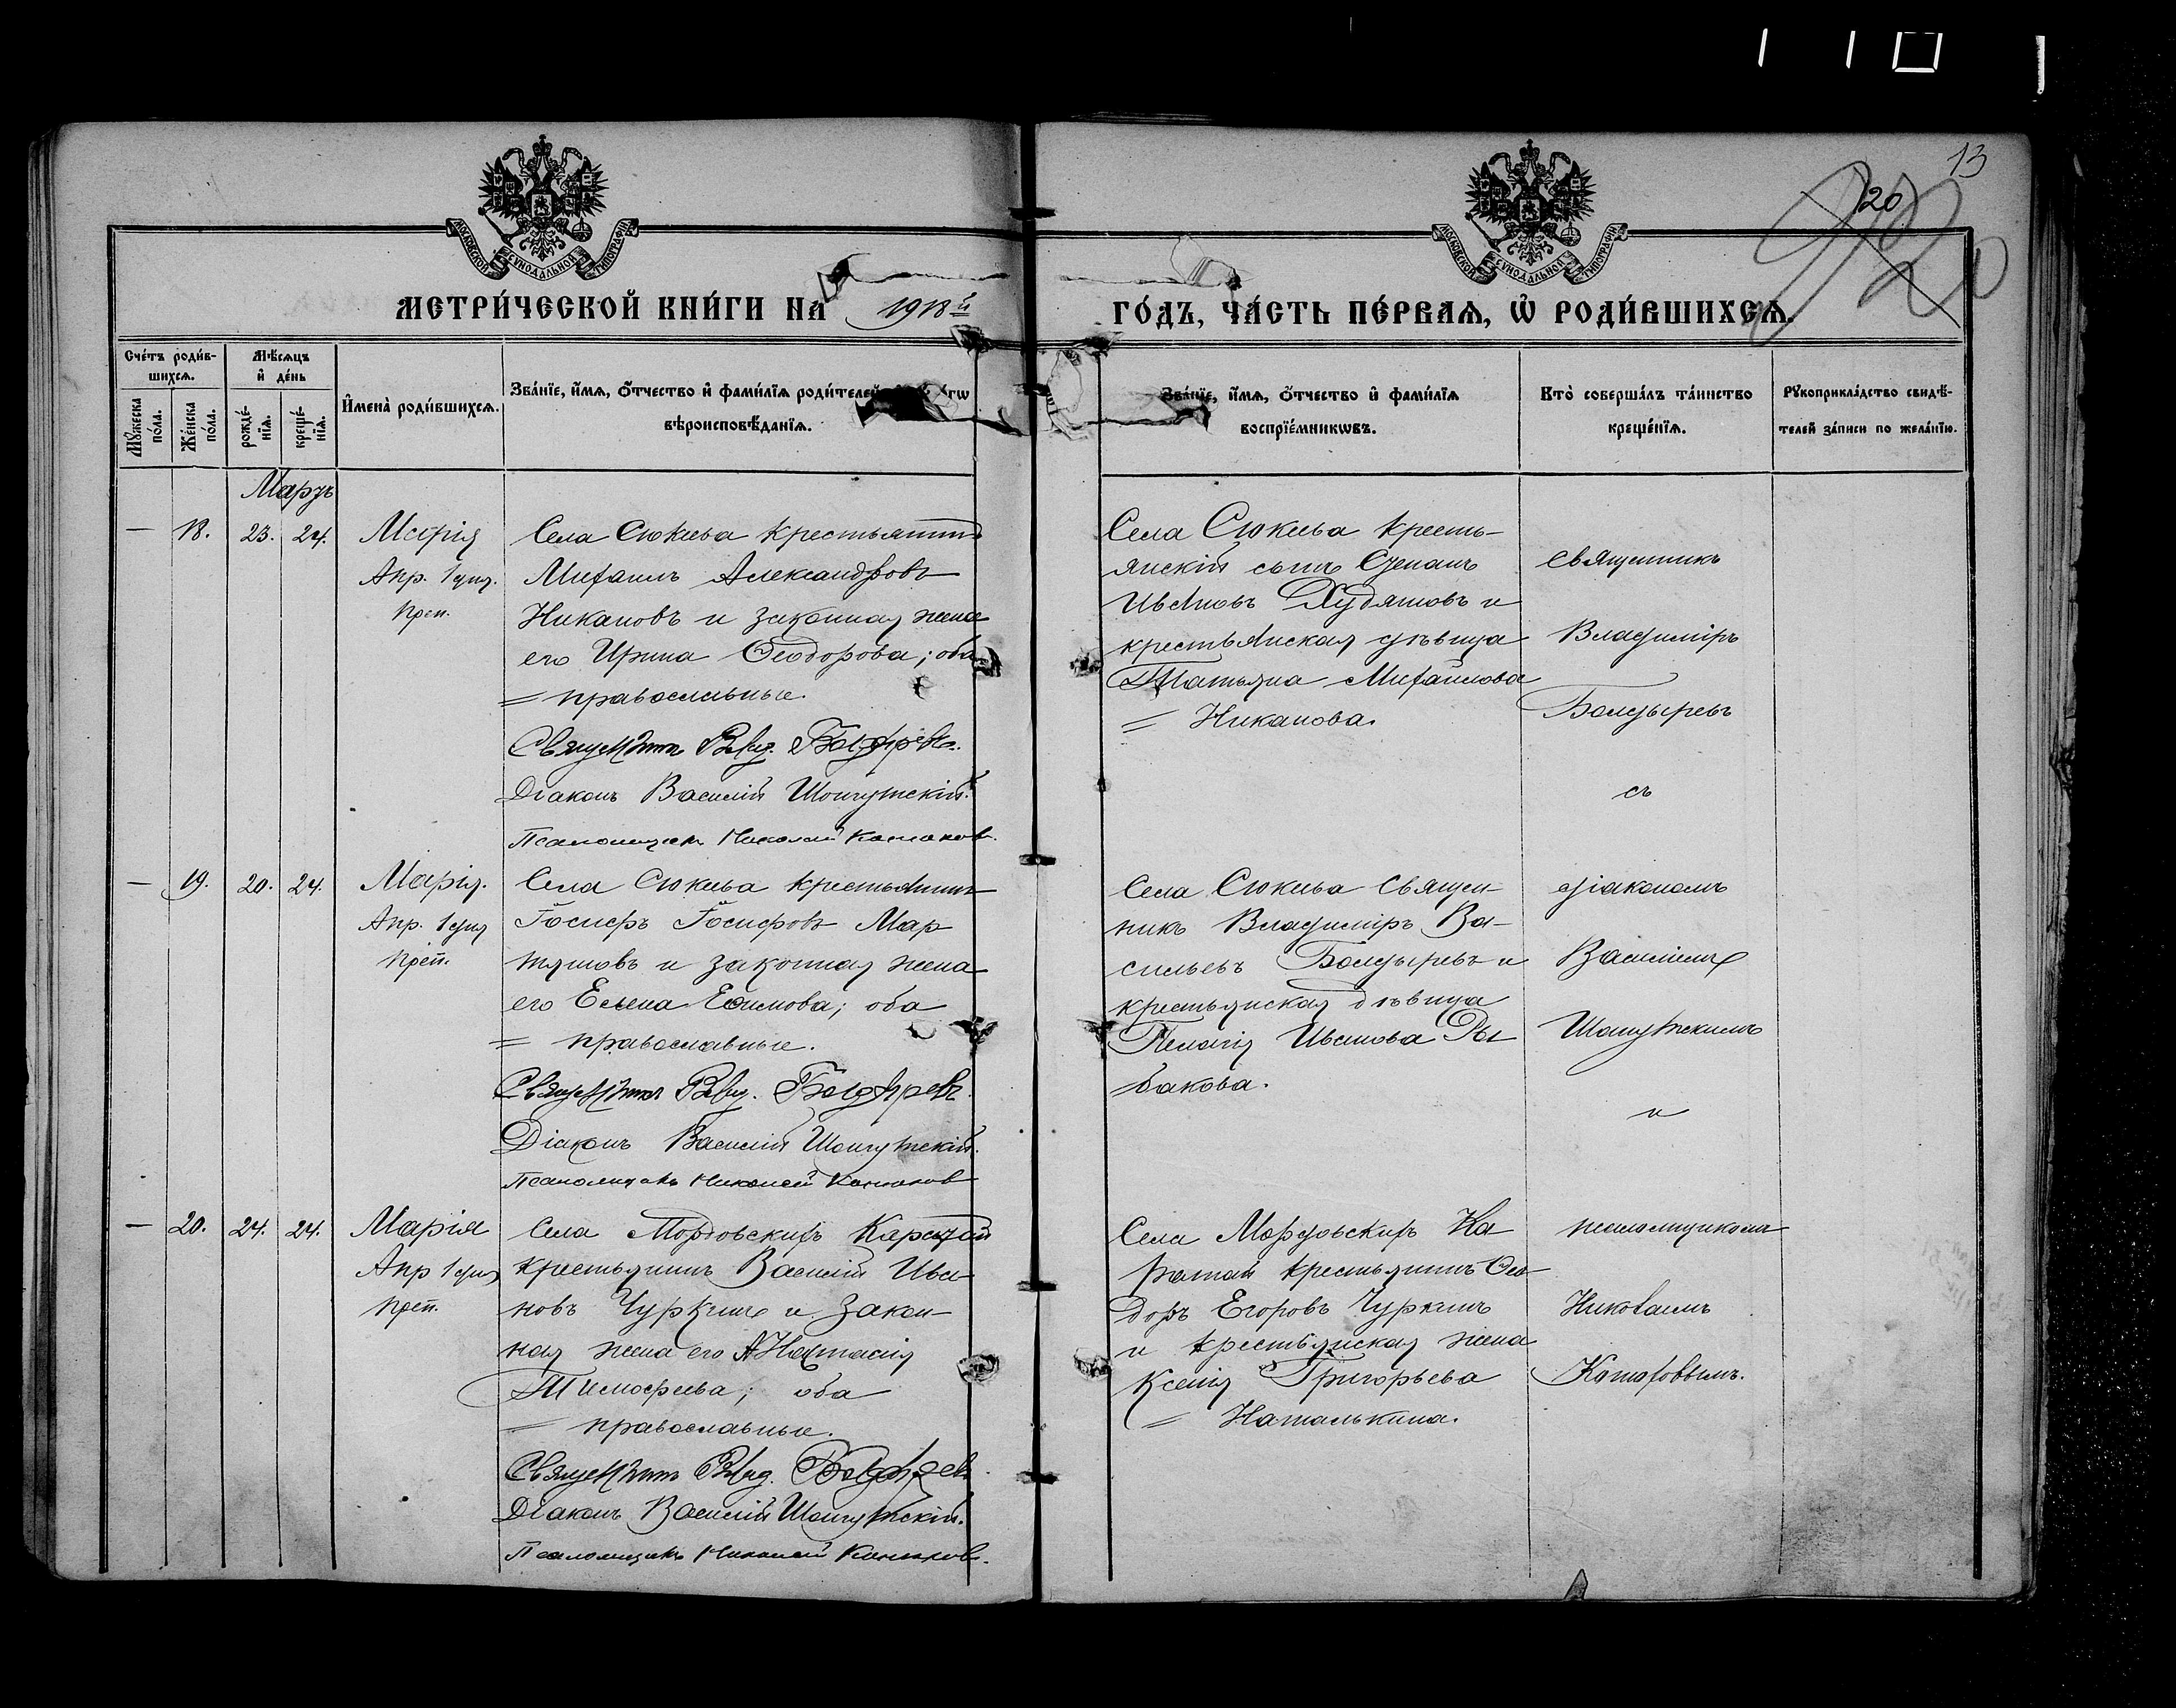 13
20
МОСКОВСКОЙ СѴНОДАЛЬНОЙ ТИПОГРАФІИ
МОСКОВСКОЙ СѴНОДАЛЬНОЙ ТИПОГРАФІИ
МЕТРИ́ЧЕСКОЙ КНИ́ГИ НА 1918й
ГО́ДЪ, ЧА́СТЬ ПЕ́РВАѦ, Ѡ҆ РОДИ́ВШИХСѦ.
Сче́тъ роди́в-
шихсѧ.
Мѣ́сѧцъ
и҆ де́нь
Мꙋ́жеска по́ла.
Же́нска по́ла.
рожде́-
нїѧ.
креще́-
нїѧ.
И҆мена̀ роди́вшихсѧ.
Зва́нїе, и҆́мѧ, ѻ҆́тчество и҆ фами́лїѧ роди́телей
вѣроисповѣ́данїѧ.
Зва́нїе, и҆́мѧ, ѻ҆́тчество и҆ фами́лїѧ
воспрїе́мникѡвъ.
Кто̀ соверша́лъ та́инство
креще́нїѧ.
Рꙋкоприкла́дство свидѣ́-
телей за́писи по жела́нїю.
Мартъ
— 18. 23. 24.
Марія
Апр. 1 дня.
преп.
Села Сюкеева крестьянинъ
Михаилъ Александровъ
Никановъ и законная жена
его Ирина Ѳеодорова; оба
= православные.
Священникъ Влад. Болдыревъ.
Діаконъ Василій
Псаломщикъ Николай
Села Сюкеева кресть-
янскій сынъ Степанъ
Ивановъ Худяшовъ и
крестьянская дѣвица
Татьяна Михайлова
= Никанова.
Священникъ
Владиміръ
Болдыревъ
съ
— 19. 20. 24.
Марія.
Апр. 1 дня
преп.
Села Сюкеева крестьянинъ
Іосифъ Іосифовъ Мар
тяшовъ и законная жена
его Елена Ефимова; оба
= православные.
Священникъ Влад. Болдыревъ.
Діаконъ Василій
Псаломщикъ Николай
Села Сюкеева Священ-
никъ Владиміръ Ва-
сильевъ Болдыревъ и
крестьянская дѣвица
Пелагія Иванова Ры
бакова.
діакономъ
Василіемъ
и
— 20. 24. 24.
Марія
Апр 1 дня
преп.
Села Мордовскихъ Каратай
крестьянинъ Василій Ива-
новъ Чуркинъ и закон-
ная жена его Анастасія
Тимофеева; оба
= православные.
Священникъ Влад. Болдыревъ.
Діаконъ Василій
Псаломщикъ Николай
Села Мордовскихъ Ка
ратай крестьянинъ Ѳео-
доръ Егоровъ Чуркинъ
и крестьянская жена
Ксенія Григорьева
= Наталькина.
псаломщикомъ
Николаемъ